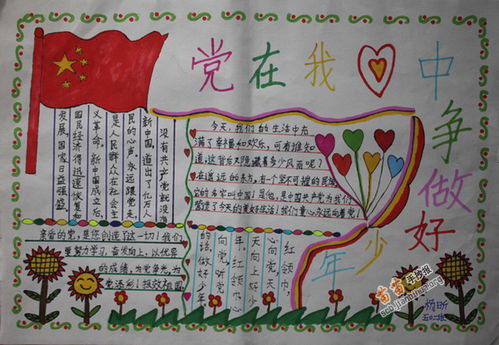 党在我中
争做好
少年
没有共产党就没有
新中国，道出了亿万人
民的心声。永远跟党走
是人民群众在社会主
义革命。新中国成立后，
国民经济得迅速恢复和
发展。国家日益强盛。
今天，我们的生活中充
满了幸福和欢乐，可有谁知
道，这背后又隐藏着多少风雨呢？
在遥远的东方，有一个坚不可摧的民族
它的名字叫中国！是他，是中国共产党为我们
营造了今天的美好生活！我们童心永远向着党！
亲爱的党，是您创造了这一切！我们
要努力学习，奋发向上，以优异
的成绩，为党争光，为
党添彩！报效祖国
红领巾，
心向党，天
天向上好少
年。红领巾心
向党，听党
的话做好少年
苗苗手抄报
杨昕